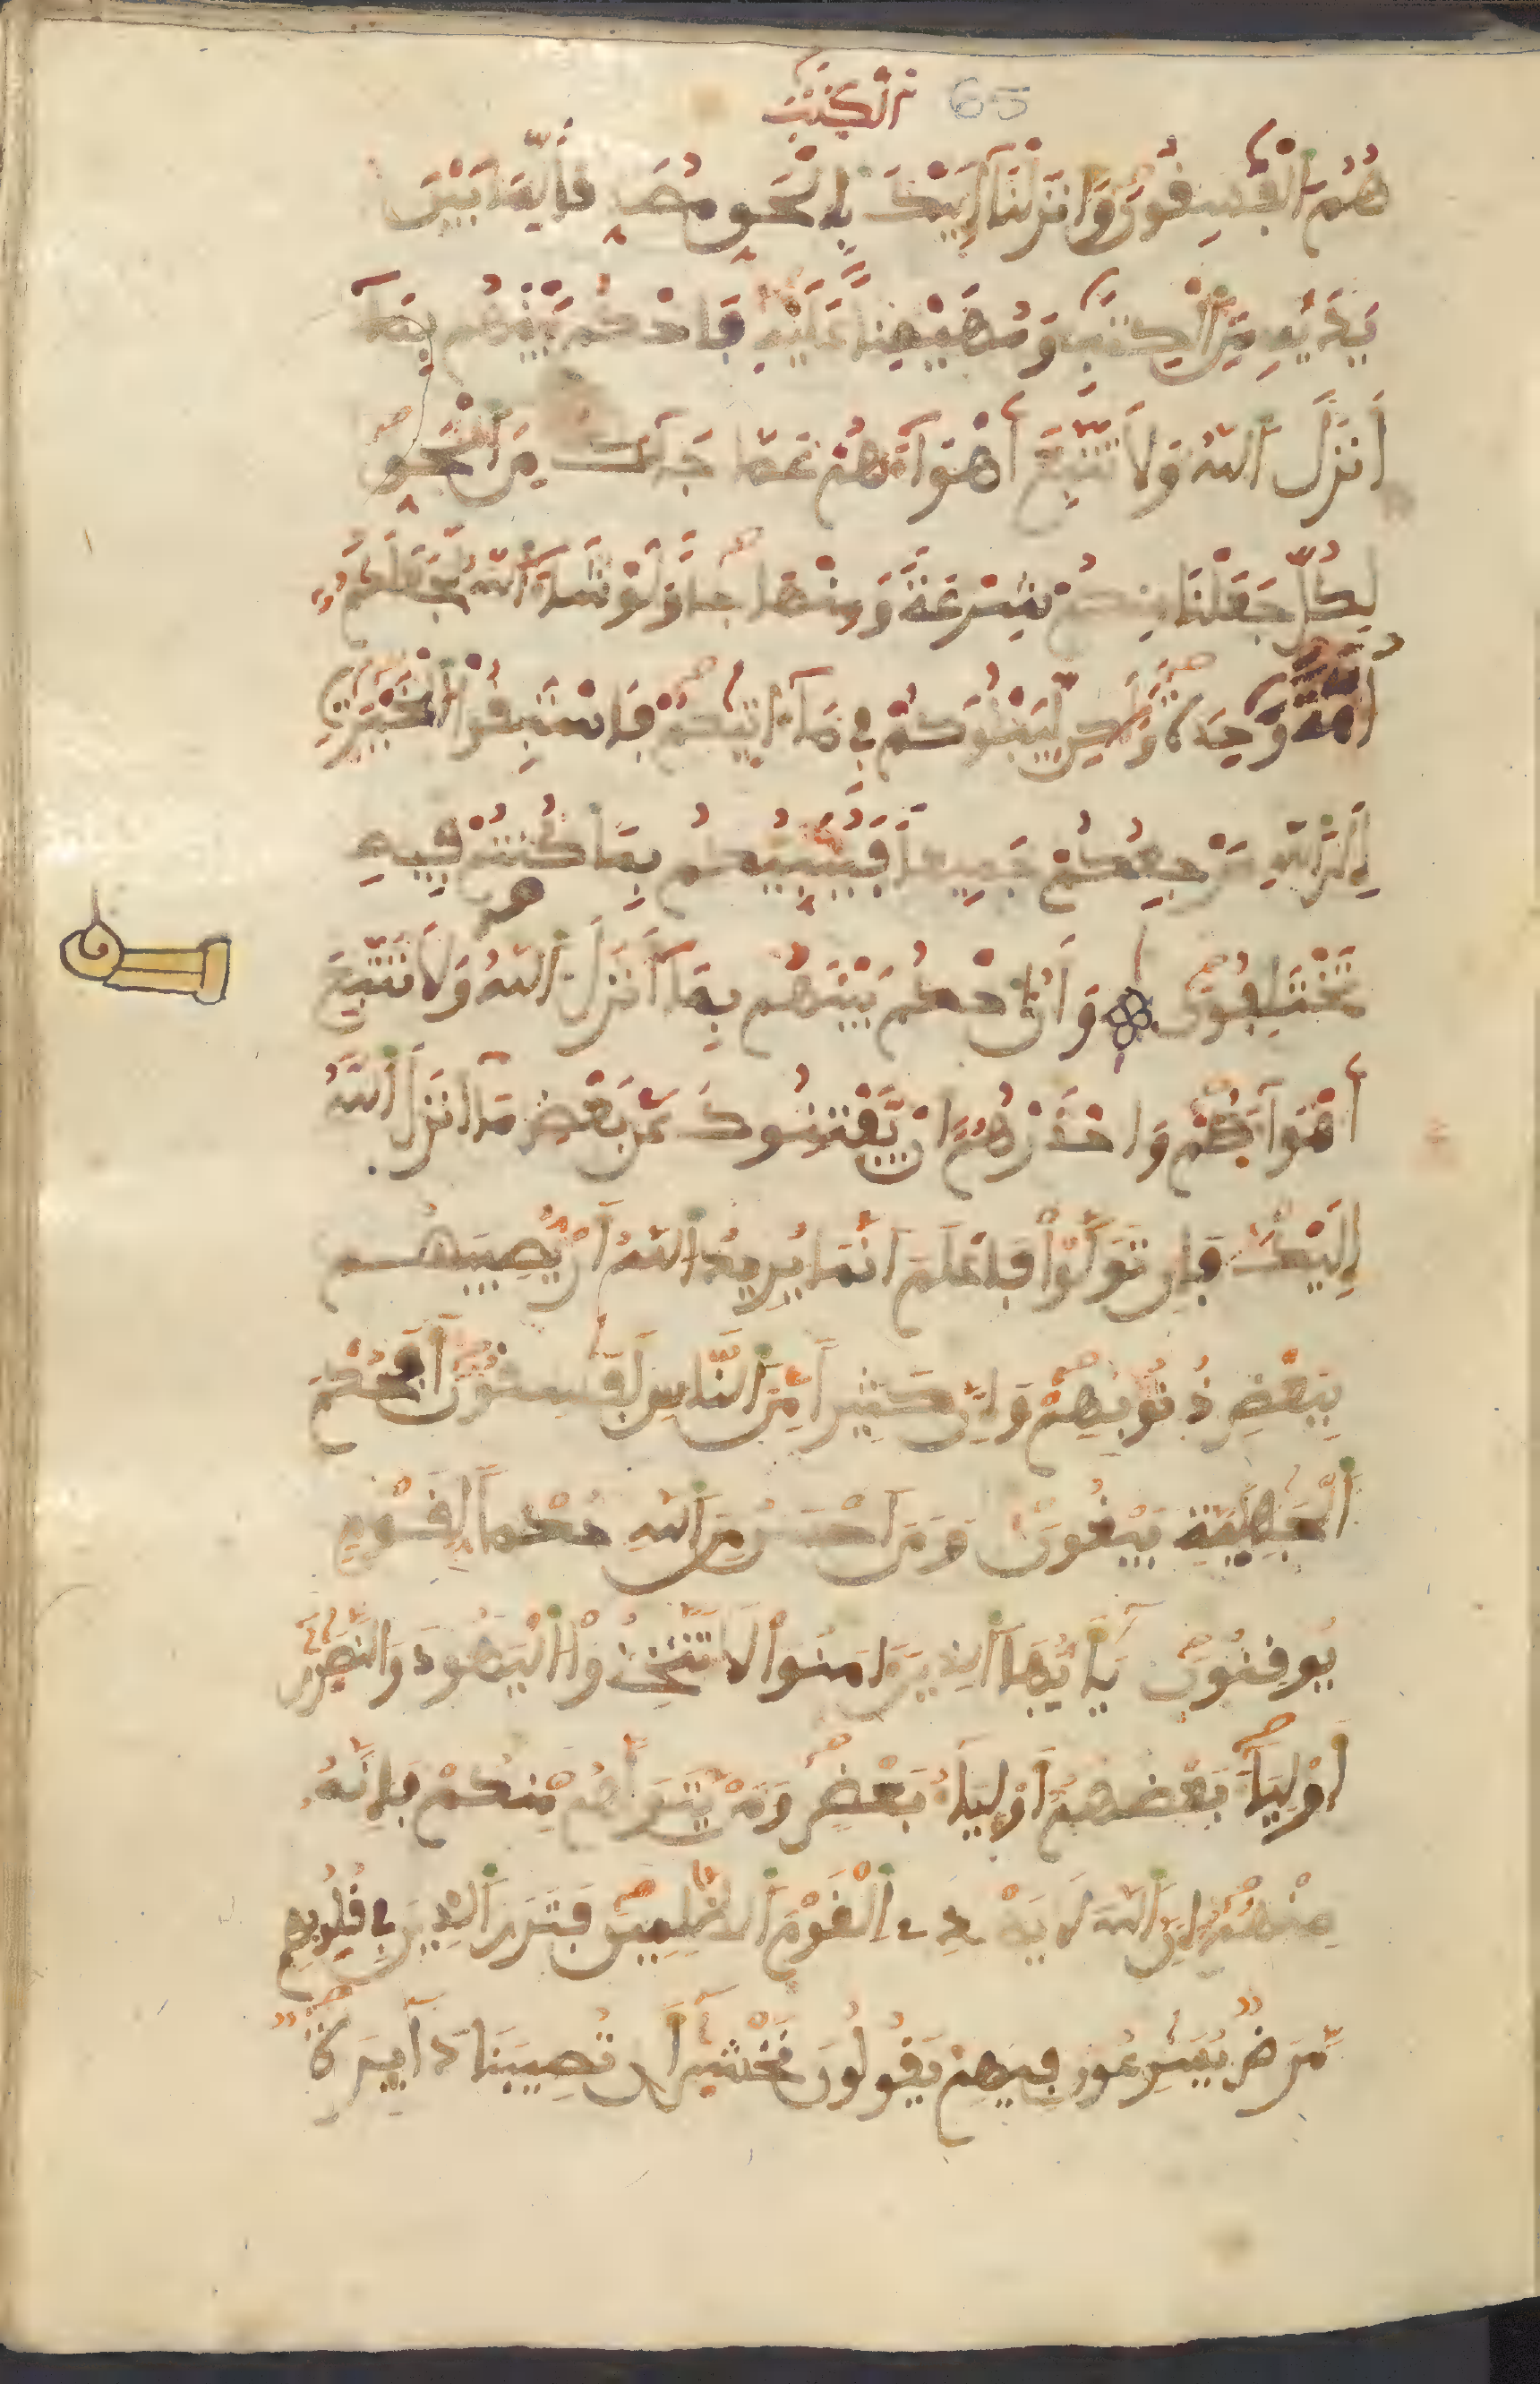 65 الكتب
هُمُ الفسفون وانزلنا إليك بالحق مصد فا لما بين
يديه من الكتب ومهيمنا عليه فاحكم بينهم بما
أنزل الله ولا تتبع أهواءهم عما جاءك من الحق
لكل جعلنا منكم شرعة ومنهاجا ولو شاء الله لجعلكم
أمة وحدة ولكن ليبلوكم في ما ءاتيكم فاستبقوا الخيرت
إلى الله مرجعكم جميعا فينبئكم بما كنتم فيه
تختلفون وأن احكم بينهم بما أنزل الله ولا تتبع
أهواءهم واحذرهم ان يفتنوك عن بعض ما انزل الله
إليك فإن تولوا فاعلم انما يريد الله أن يصيبهم
ببعض ذنوبهم وإن كثيرا من الناس لفسقون أفحكم
الجهلية يبغون ومن احسن من الله حكما لقوم
يوقنون يأيها الذين ءامنوا لا تتخذوا اليهود والنصرى
أولياء بعضهم أولياء بعض ومن يتولهم منكم فإنه
منهم إن الله لا يهدى القوم الظلمين فترى الذين في قلوبهم
مرض يسرعون فيهم يقولون نخشى أن تصيبنا دايرة